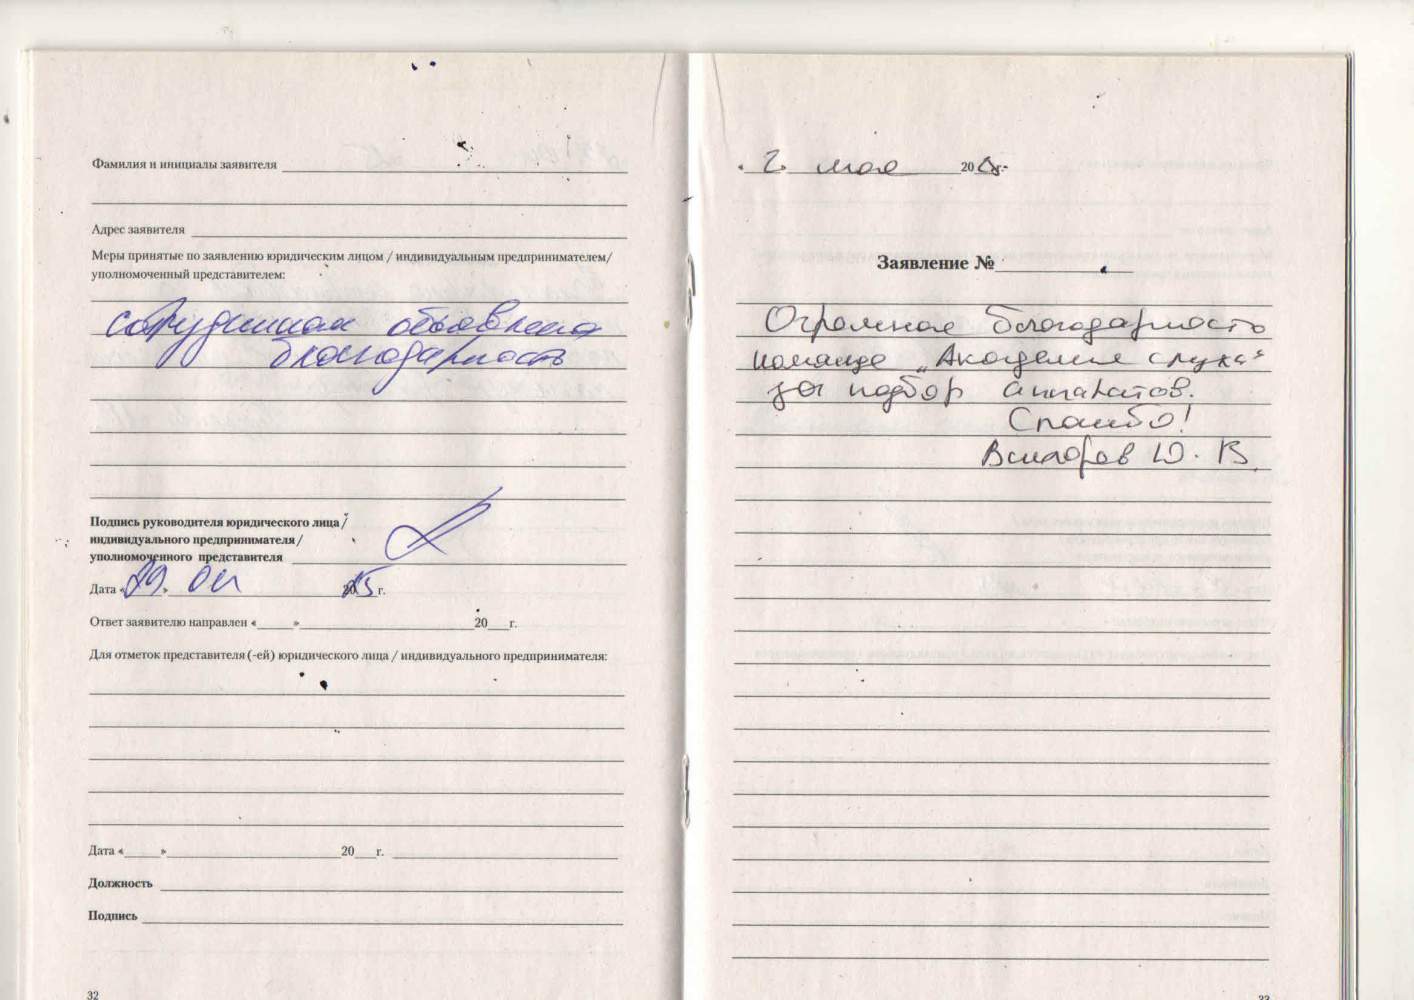 Фамилия и инициалы заявителя
Адрес заявителя
Меры принятые по заявлению юридическим лицом / индивидуальным предпринимателем/
уполномоченный представителем:
сотрудникам объявлена
благодарность
Подпись руководителя юридического лица/
индивидуального предпринимателя/
уполномоченного представителя
Дата «29» 04 2015 г.
Ответ заявителю направлен «____»____20__г.
Для отметок представителя (-ей) юридического лица / индивидуального предпринимателя:
Дата «____»____20__г.
Должность
Подпись
32
«2. мая 20 г.
Заявление №
Огромная благодарность
команде „Академия слуха"
за подбор аппаратов.
Спасибо!
Ю. В.
33